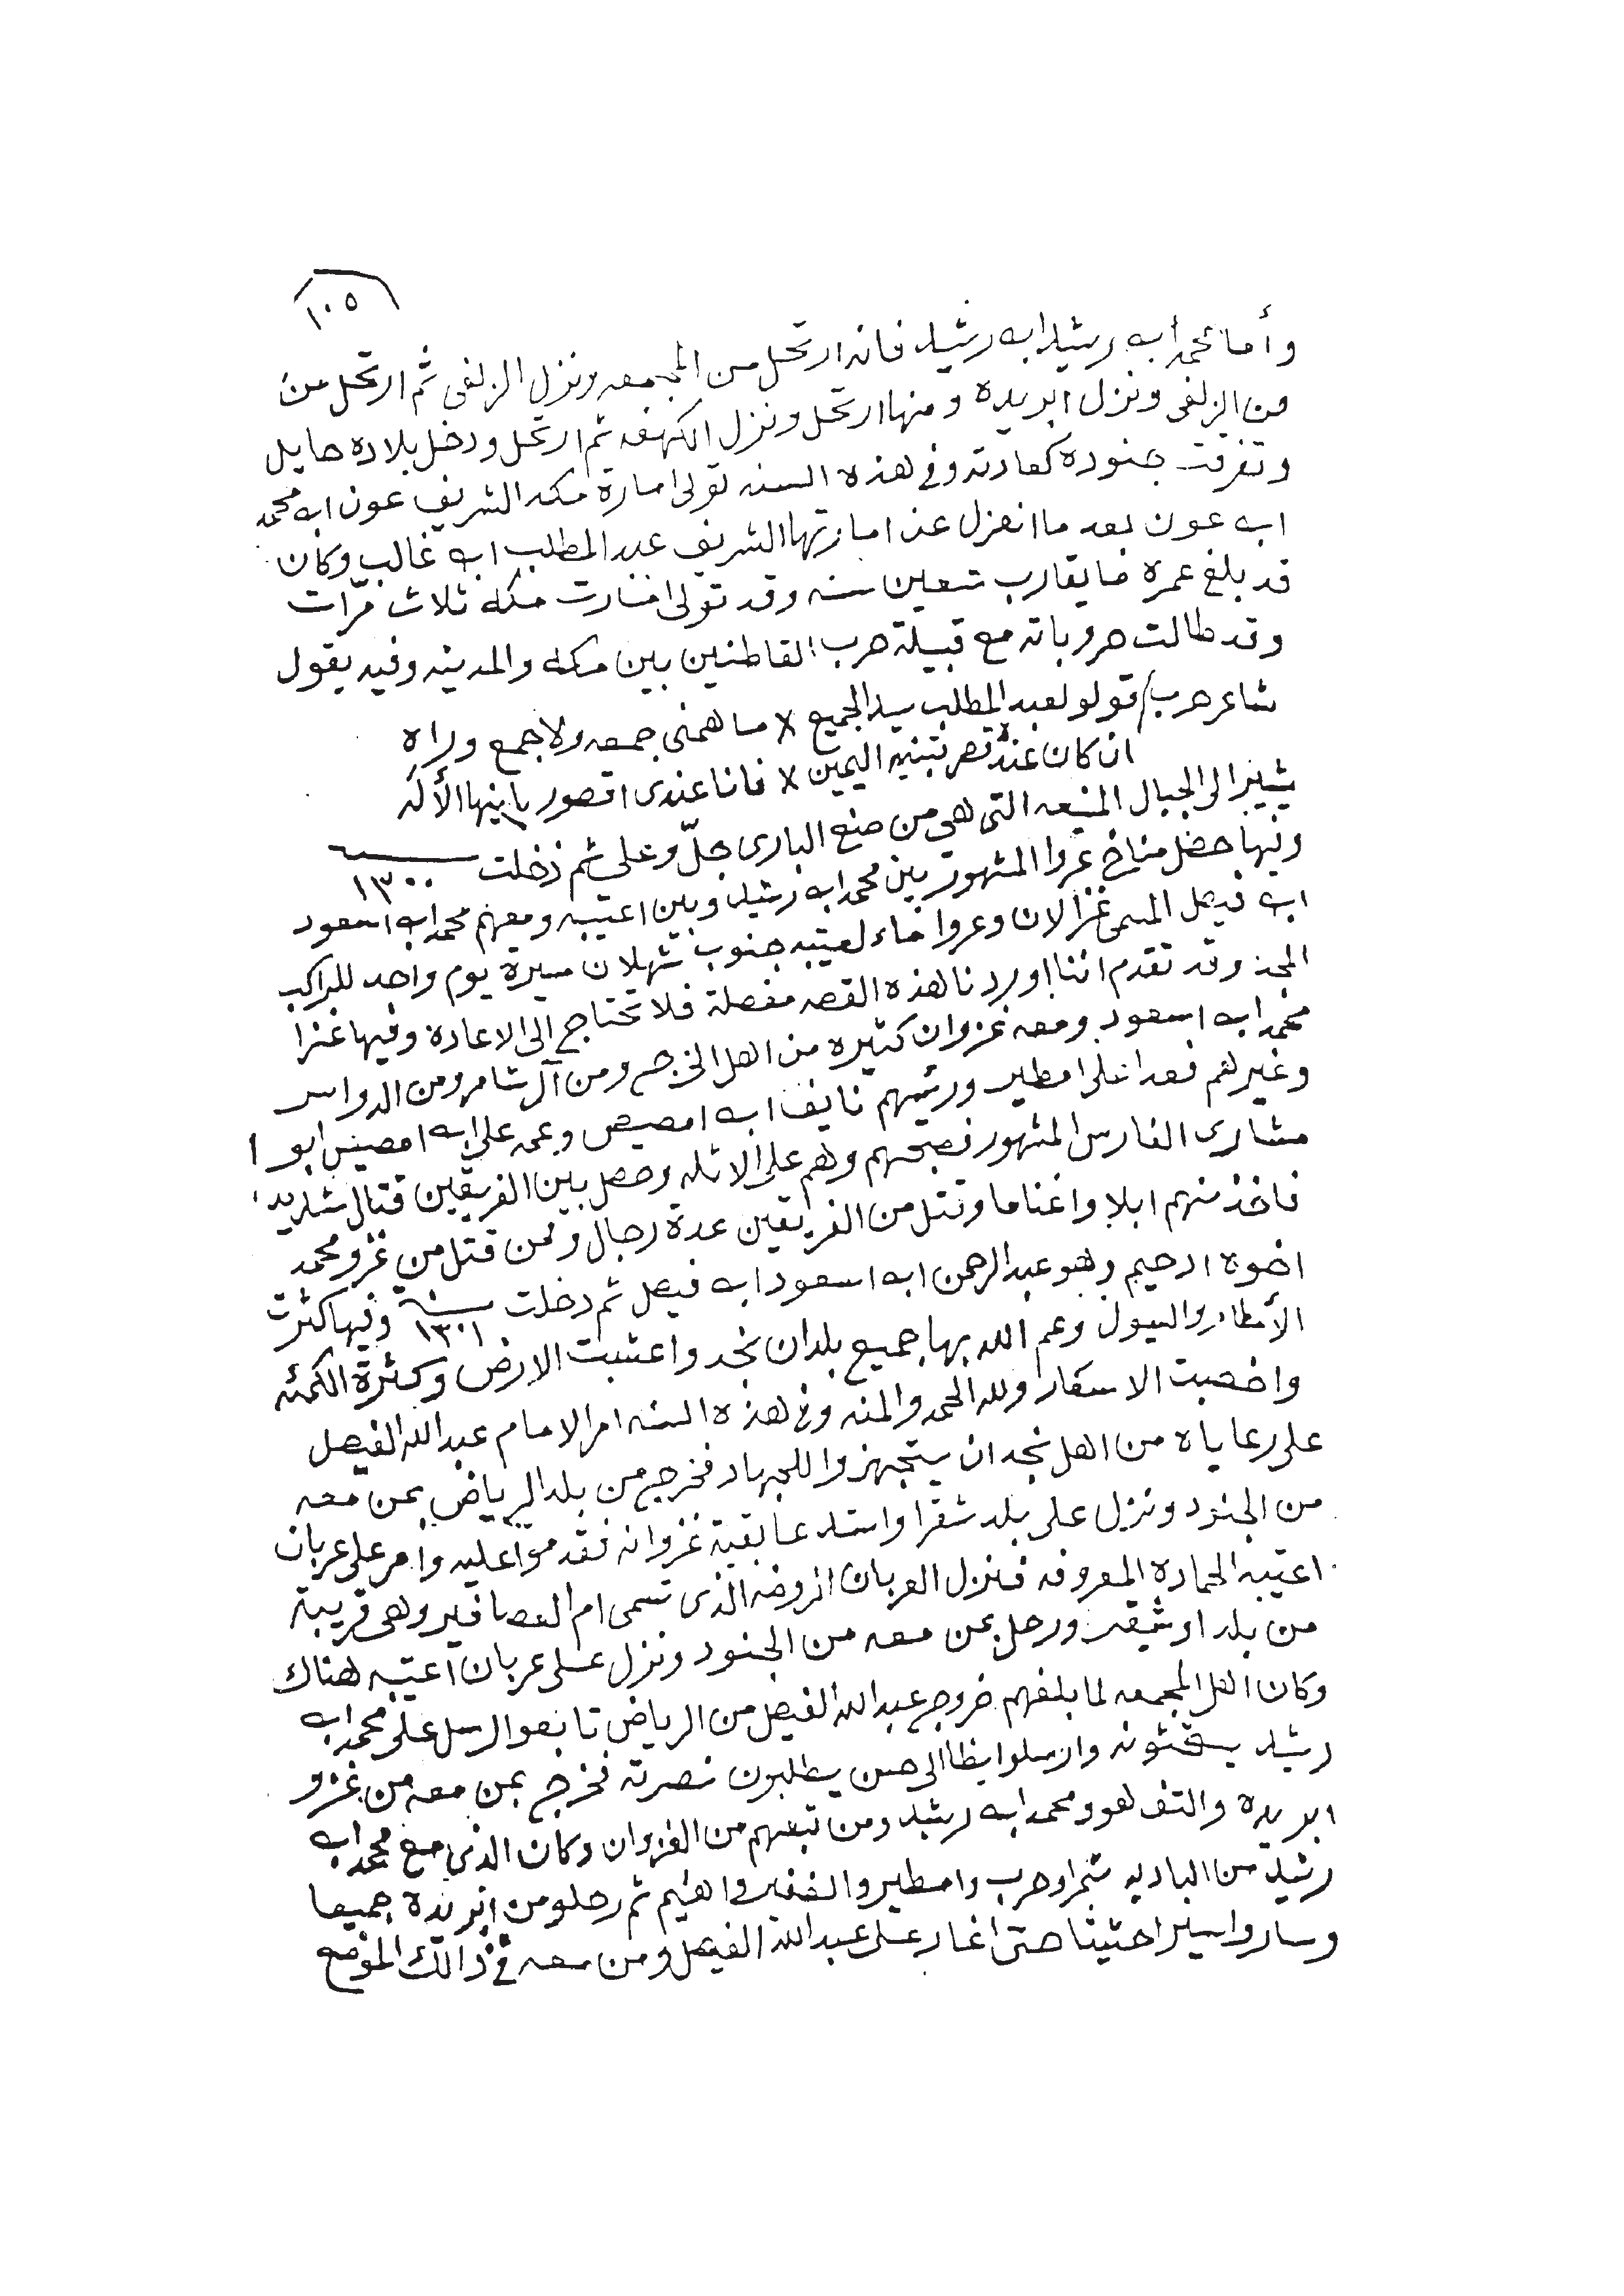 ١٠٥
وأما محمد ابه رشيد ابه رشيد فانه ارتحل من المجمعه ونزل الزلفى ثم ارتحل من
من الزلفى ونزل ابريده ومنها ارتحل ونزل الكهفه ثم ارتحل ودخل بلاده حايل
وتفرقت جنوده كعادته وفي هذه السنه تولى امارة مكه الشريف عون ابه محمد
ابه عون بعد ما انعزل عن امارتها الشريف عبد المطلب ابه غالب وكان
قد بلغ عمره ما يقارب تسعين سنه وقد تولى امارت مكه ثلاث مرّات
وقد طالت حروباته مع قبيلة حرب القاطنين بين مكه والمدينه وفيه يقول
شاعر حرب/ قولو لعبد المطلب سيد الجميع × ما همني جمعه ولا جمع وراه
ان كان عنده قصر تبنيه اليمين × فانا عندي اقصور بانيها الأله
يشير الى الجبال المنيعه التي هي من صنع الباري جلّ وعلى ثم دخلت سنة ١٣٠٠
وفيها حصل مناخ عروا المشهور بين محمد ابه رشيد وبين اعتيبه ومعهم محمد ابه اسعود
ابه فيصل المسمى غزالان وعروا ماء لعتيبه جنوب ثهلان مسيرة يوم واحد للراكب
المجد وقد تقدم اننا اوردنا هذه القصه مفصلة فلا تحتاج الى الاعاده وفيها غزا
محمد ابه اسعود ومعه غزوان كثيره من اهل الخرج ومن آل شامر ومن الدواسر
وغيرهم فعدا على امطير ورئيسهم نايف ابه امصيص وعمه علي ابه امصيص ابو ا
مشاري الفارس المشهور فصبحهم وهم على الاثله وحصل بين الفريقين قتال شديد
فاخذ منهم ابلا واغناما وقتل من الفريقين عدة رجال وممن قتل من غزو محمد
اخوه ادحيم وهو عبد الرحمن ابه اسعود ابه فيصل ثم دخلت سنة ١٣٠١ وفيها كثرت
الأمطار والسيول وعم الله بها جميع بلدان نجد واعشبت الارض وكثرة الكمئه
واخصبت الاسعار ولله الحمد والمنه وفي هذه السنه امر الامام عبد الله الفيصل
على رعاياه من اهل نجد ان يتجهزوا للجهاد فخرج من بلد الرياض بمن معه
من الجنود ونزل على بلد شقرا واستدعا بقية غزوانه فقدموا عليه وامر على عربان
اعتيبه الحماده المعروفه فنزل العربان الروضه الذى تسمى ام العصافير وهي قريبة
من بلد اوشيقر ورحل بمن معه من الجنود ونزل على عربان اعتيبه هناك
وكان اهل المجمعه لما بلغهم خروج عبد الله الفيصل من الرياض تابعو الرسل على محمد ابه
رشيد يستحثونه وارسلوا ايظا الى حسن يطلبون نصرته فخرج بمن معه من غزو
ابريده والتف هو ومحمد ابه رشيد ومن تبعهم من الغزوان وكان الذي مع محمد ابه
رشيد من الباديه شمر وحرب وامطير والظفير واهتيم ثم رحلو من ابريده جميعا
وساروا سيرا حثيثا حتى اغار على عبد الله الفيصل ومن معه في ذالك الموضع